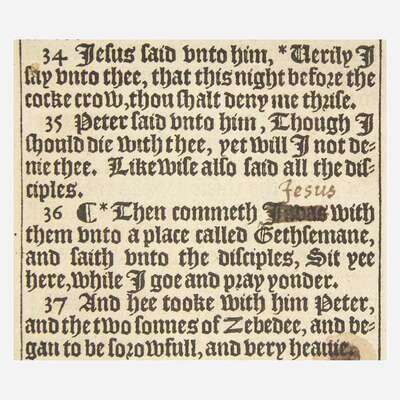 34 Jesus said vnto him, *Uerily I
say vnto thee, that this night before the
cocke crow, thou shalt deny me thrise.
35 Peter said vnto him, Though I
should die with thee, yet will I not de-
nie thee. Likewise also said all the dis-
ciples.
Jesus
36 ¶*Then commeth Judas with
them vnto a place called Gethsemane,
and saith vnto the disciples, Sit yee
here, while I goe and pray yonder.
37 And hee tooke with him Peter,
and the two sonnes of Zebedee, and be-
gan to be sorowfull, and very heauie.